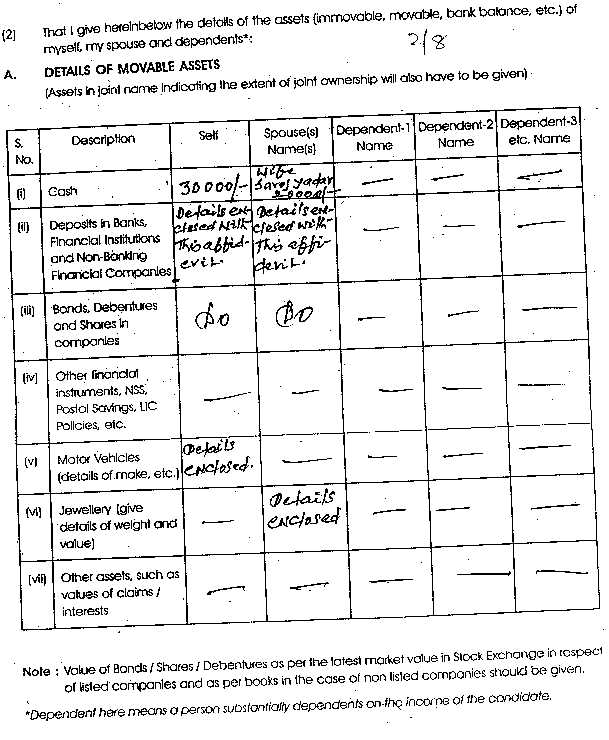 (2) That I give hereinbelow the details of the assets (immovable, movable, bank balance, etc.) of
myself, my spouse and dependents*:
2/8
A. DETAILS OF MOVABLE ASSETS
(Assets in joint name indicating the extent of joint ownership will also have to be given)
S. No. Description Self Spouse(s) Name(s) Dependent-1 Name Dependent-2 Name Dependent-3 etc. Name
(i) Cash 30000/- Wife Saroj Yadav
(ii) Deposits in Banks, Details en- Details en-
Financial Institutions closed with closed with
and Non-Banking This affid- This affi-
Financial Companies evit. devit.
(iii) Bonds, Debentures
and Shares in
companies
(iv) Other financial
instruments, NSS,
Postal Savings, LIC
Policies, etc.
(v) Motor Vehicles Details
(details of make, etc.) enclosed.
(vi) Jewellery (give Details
details of weight and enclosed
value)
(vii) Other assets, such as
values of claims /
interests
Note : Value of Bonds / Shares / Debentures as per the latest market value in Stock Exchange in respect
of listed companies and as per books in the case of non listed companies should be given.
*Dependent here means a person substantially dependents on the income of the candidate.